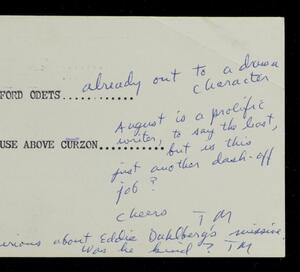 already out to a drama
character
FORD ODETS......
August is a prolific
writer, to say the least,
USE ABOVE CURZON............ but is this
just another dash-off
job?
Cheers TM
urious about Eddie Dahlberg's missive.
Was he kind? TM